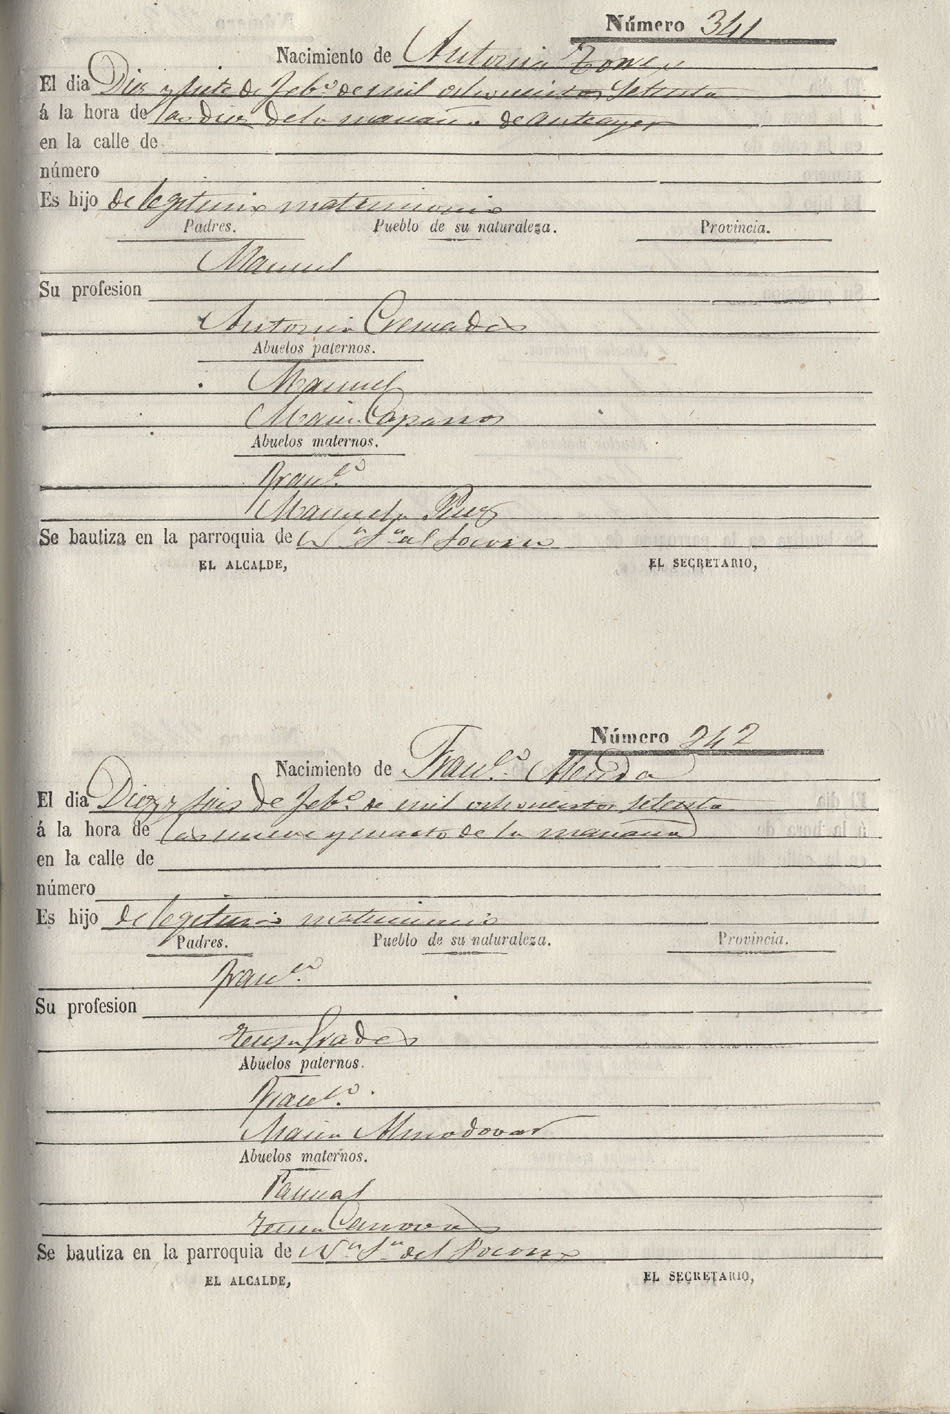 Número 341
Nacimiento de Antonia Torres
El dia Diez y siete de Feb.º de mil ochocientos setenta
á la hora de las diez de la mañana de anteayer
en la calle de
número
Es hijo de legitimo matrimonio
Padres. Pueblo de su naturaleza. Provincia.
Manuel
Su profesion
Antonia Cremades
Abuelos paternos.
Manuel
Maria Caparros
Abuelos maternos.
Fran.co
Manuela Perez
Se bautiza en la parroquia de N.a S.a del Socorro
EL ALCALDE, EL SECRETARIO,
Número 242
Nacimiento de Fran.co Merida
El dia Diez y seis de Feb.º de mil ochocientos setenta
á la hora de las nueve y cuarto de la mañana
en la calle de
número
Es hijo de legitimo matrimonio
Padres. Pueblo de su naturaleza. Provincia.
Fran.co
Su profesion
Teresa Prades
Abuelos paternos.
Fran.co
Maria Almodovar
Abuelos maternos.
Pascual
Canovas
Se bautiza en la parroquia de N.a S.a del Socorro
EL ALCALDE, EL SECRETARIO,